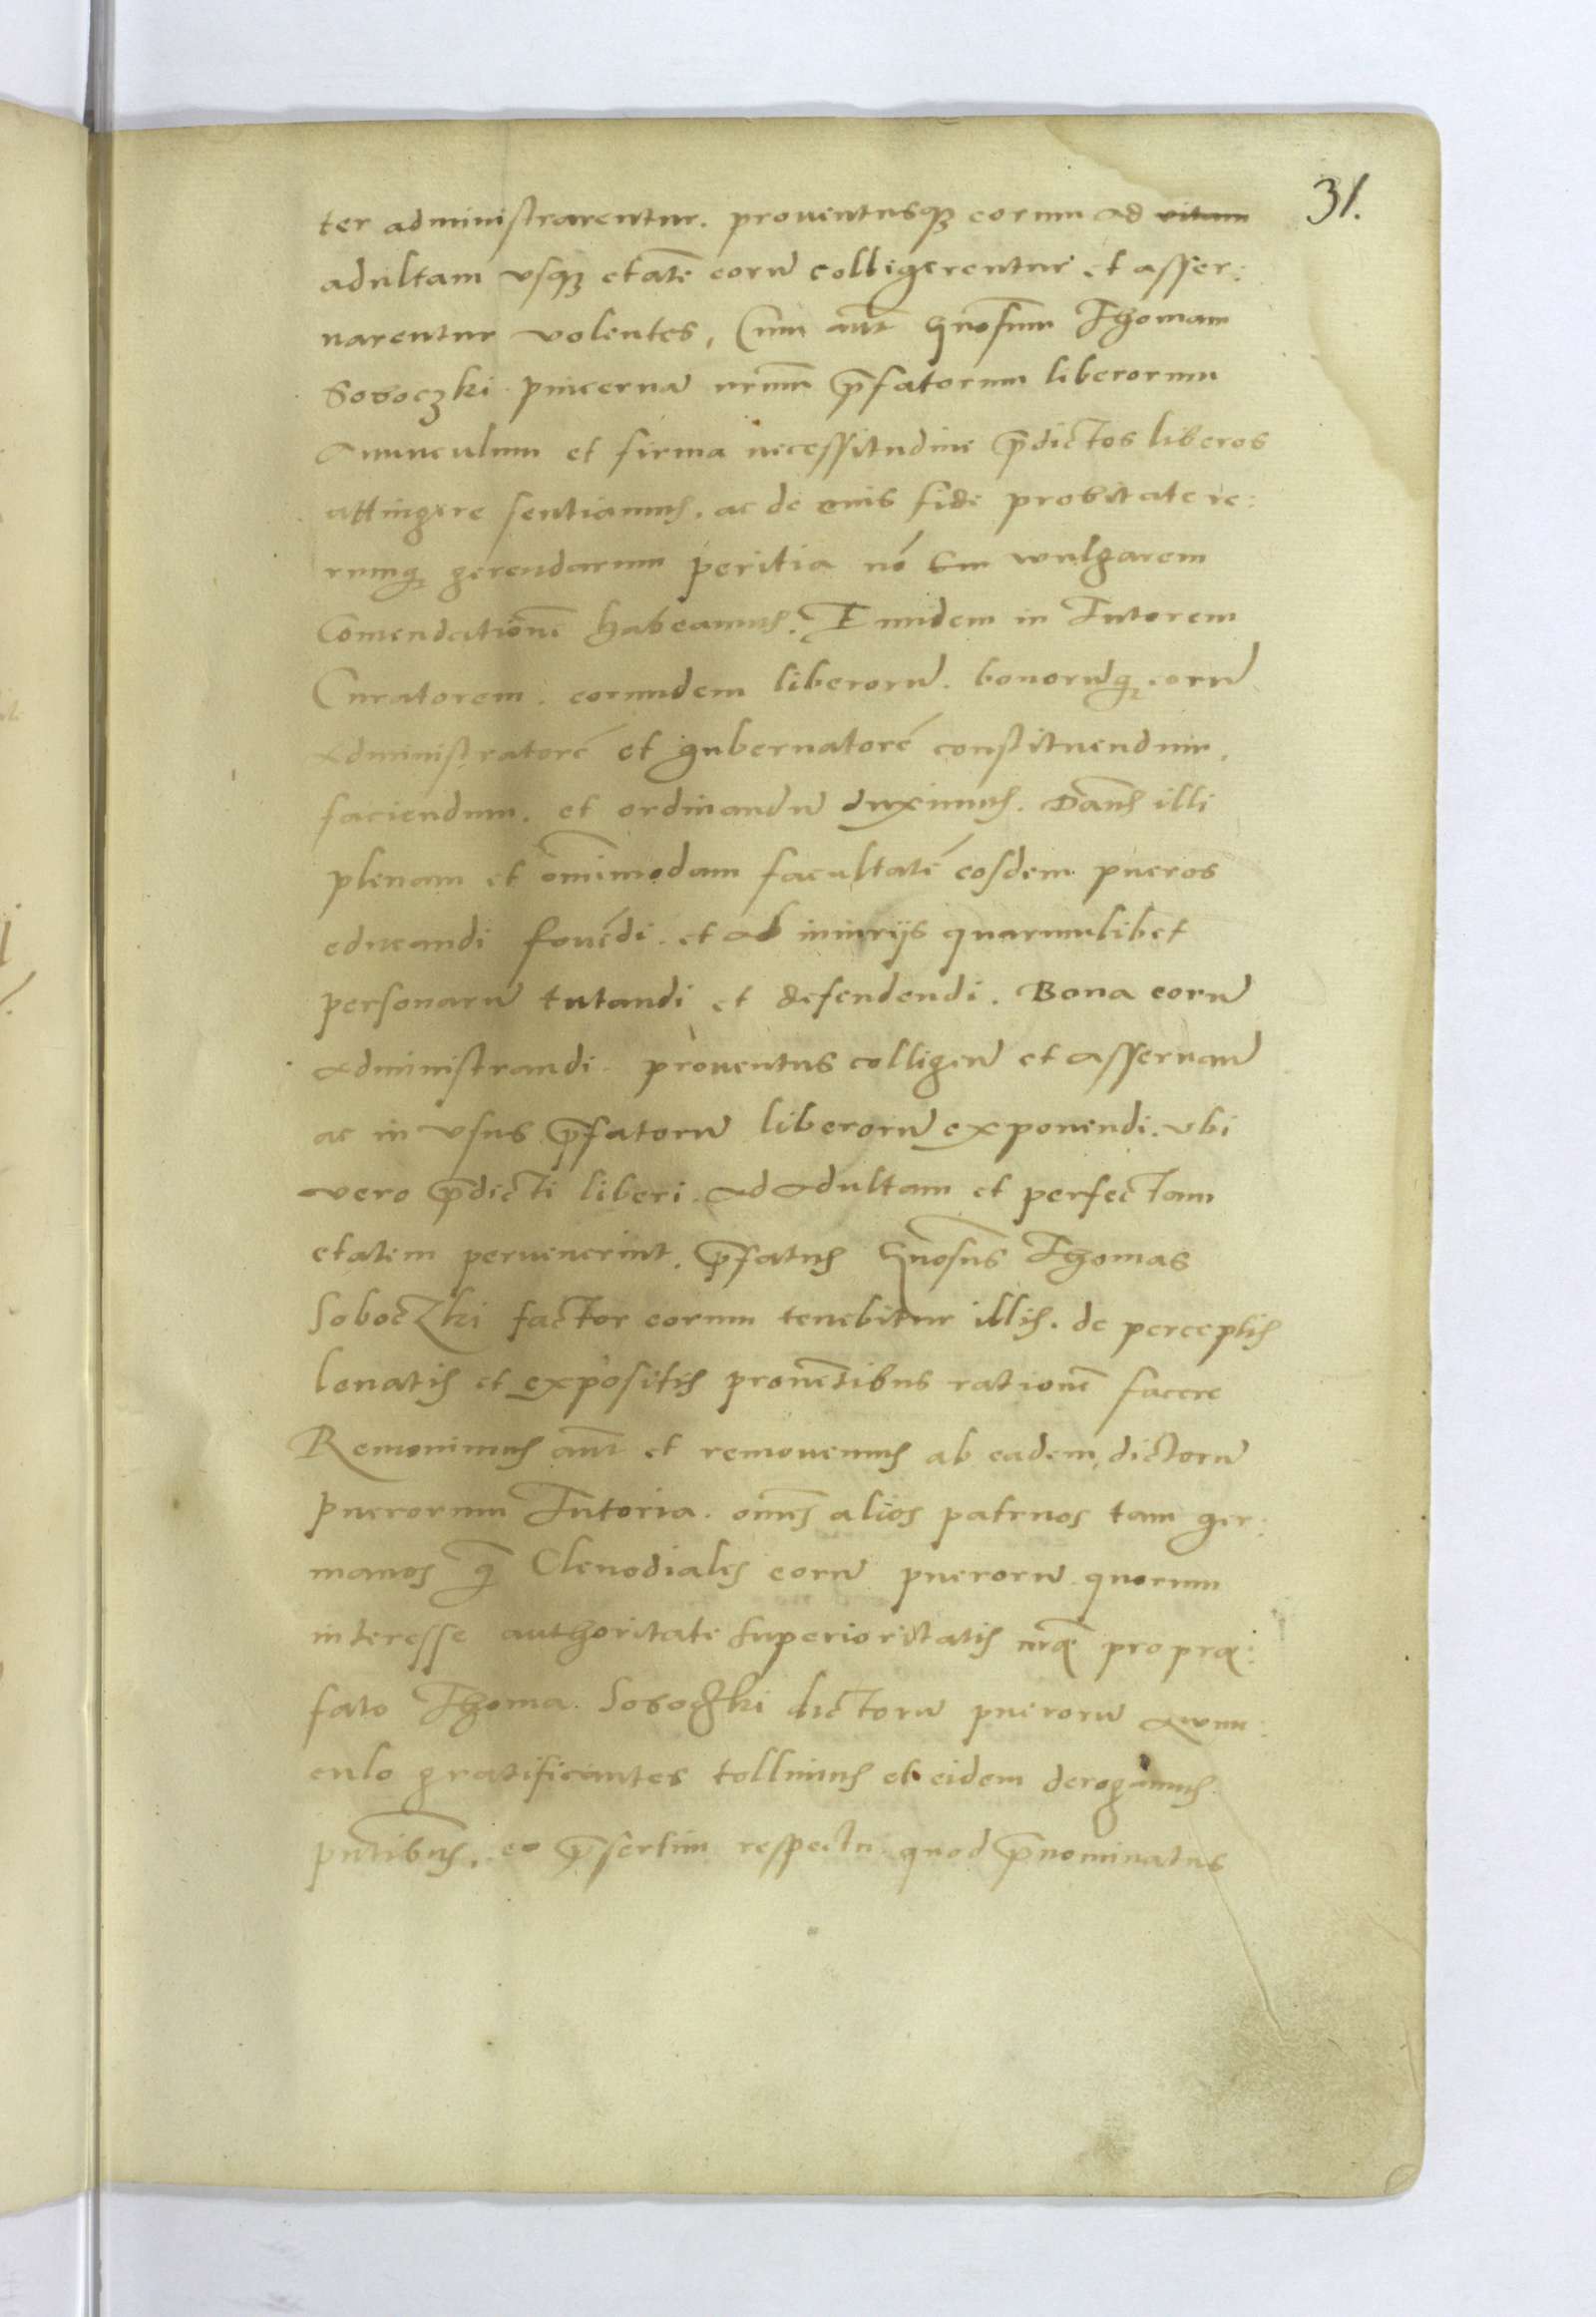 31.
ter administrarentur. prouentusq3 eorum ad vitam
adultam vsq3 etatē eorū colligerentur et asser:
uarentur volentes, Cum aūt Gn̄osum Thomam
Soboczki pincernā nr̄um p̄fatorum liberorum
Auunculum et firma necessitudine p̄dictos liberos
attingere sentiamus. ac de eius fide probitate re:
rumq3 gerendarum peritia nō wulgarem
Com̄endationē habeamus. Eundem in Tutorem
Curatorem. eorundem liberorū. bonorūq3 eorū
Administratorē et gubernatorē constituendum.
faciendum. et ordinandū duximus. Dān̄s illi
plenam et om̄imodam facultatē eosdem pueros
educandi fouēdi. et ab iniurijs quarumlibet
personarū tutandi et defendendi. Bona eorū
administrandi. prouentus colligen̄ et asseruan̄
ac in vsus p̄fatorū liberorū exponendi. vbi
vero p̄dicti liberi. ad adultam et perfectam
etatem peruenerint. p̄fatus Gn̄osus Thomas
Soboczki factor eorum tenebitur illis. de perceptis
leuatis et expositis prouētibus rationē facere
Remouimus aūt et remouemus ab eadem dictorū
puerorum Tutoria. om̄es alios patruos tam ger:
manos q̄ Clenodiales eorū puerorū quorum
interesse authoritate superioritatis nr̄æ pro præ:
fato Thoma Soboczki dictorū puerorū Auun:
culo gratificantes tollimus et eidem derogamus
pn̄tibus. eo p̄sertim respectu quod p̄nominatus